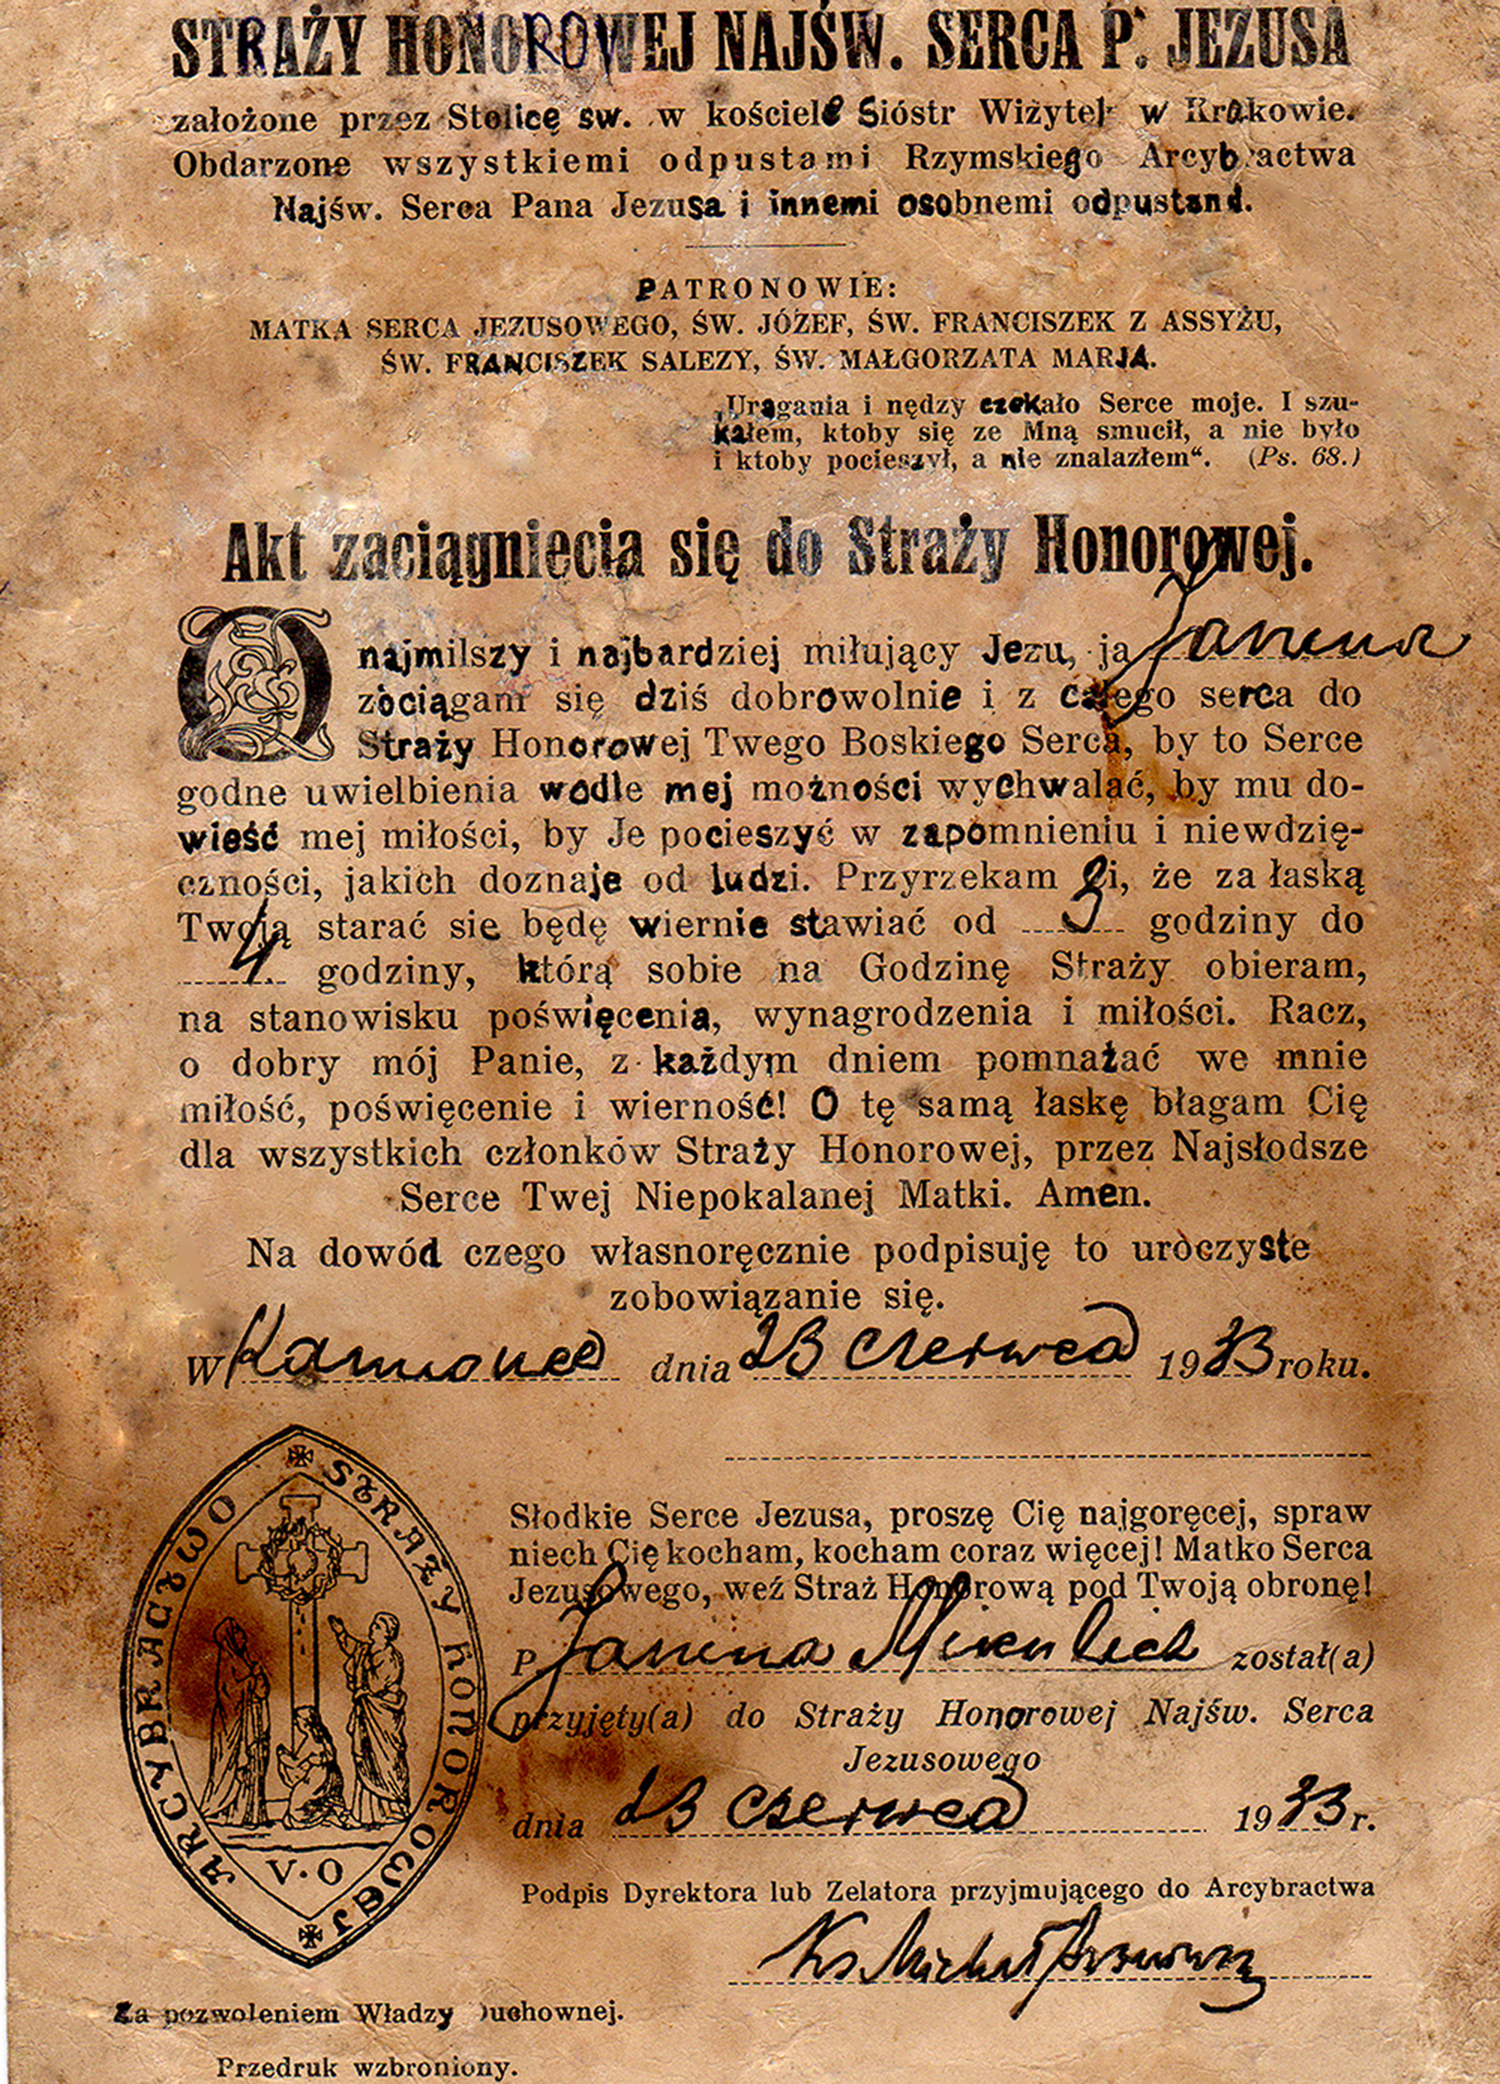 STRAŻY HONOROWEJ NAJŚW. SERCA P. JEZUSA
założone przez Stolicę św. w kościele Sióstr Wizytek w Krakowie.
Obdarzone wszystkiemi odpustami Rzymskiego Arcybractwa
Najśw. Serca Pana Jezusa i innemi osobnemi odpustami.
PATRONOWIE:
MATKA SERCA JEZUSOWEGO, ŚW. JÓZEF, ŚW. FRANCISZEK Z ASSYŻU,
ŚW. FRANCISZEK SALEZY, ŚW. MAŁGORZATA MARJA.
„Urągania i nędzy czekało Serce moje. I szu-
kałem, ktoby się ze Mną smucił, a nie było
i ktoby pocieszył, a nie znalazłem“. (Ps. 68.)
Akt zaciągnięcia się do Straży Honorowej.
O najmilszy i najbardziej miłujący Jezu, ja Janina
zaciągam się dziś dobrowolnie i z całego serca do
Straży Honorowej Twego Boskiego Serca, by to Serce
godne uwielbienia wodle mej możności wychwalać, by mu do-
wieść mej miłości, by Je pocieszyć w zapomnieniu i niewdzię-
czności, jakich doznaje od ludzi. Przyrzekam Ci, że za łaską
Twoją starać się będę wiernie stawiać od 3 godziny do
4 godziny, którą sobie na Godzinę Straży obieram,
na stanowisku poświęcenia, wynagrodzenia i miłości. Racz,
o dobry mój Panie, z każdym dniem pomnażać we mnie
miłość, poświęcenie i wierność! O tę samą łaskę błagam Cię
dla wszystkich członków Straży Honorowej, przez Najsłodsze
Serce Twej Niepokalanej Matki. Amen.
Na dowód czego własnoręcznie podpisuję to uroczyste
zobowiązanie się.
W dnia 23 czerwca 1933 roku.
ARCYBRACTWO STRAŻY HONOROWEJ
V.O
Słodkie Serce Jezusa, proszę Cię najgoręcej, spraw
niech Cię kocham, kocham coraz więcej! Matko Serca
Jezusowego, weź Straż Honorową pod Twoją obronę!
P Janina Mikulich został(a)
przyjęty(a) do Straży Honorowej Najśw. Serca
Jezusowego
dnia 23 czerwca 1933 r.
Podpis Dyrektora lub Zelatora przyjmującego do Arcybractwa
Ks. Michał
Za pozwoleniem Władzy Duchownej.
Przedruk wzbroniony.